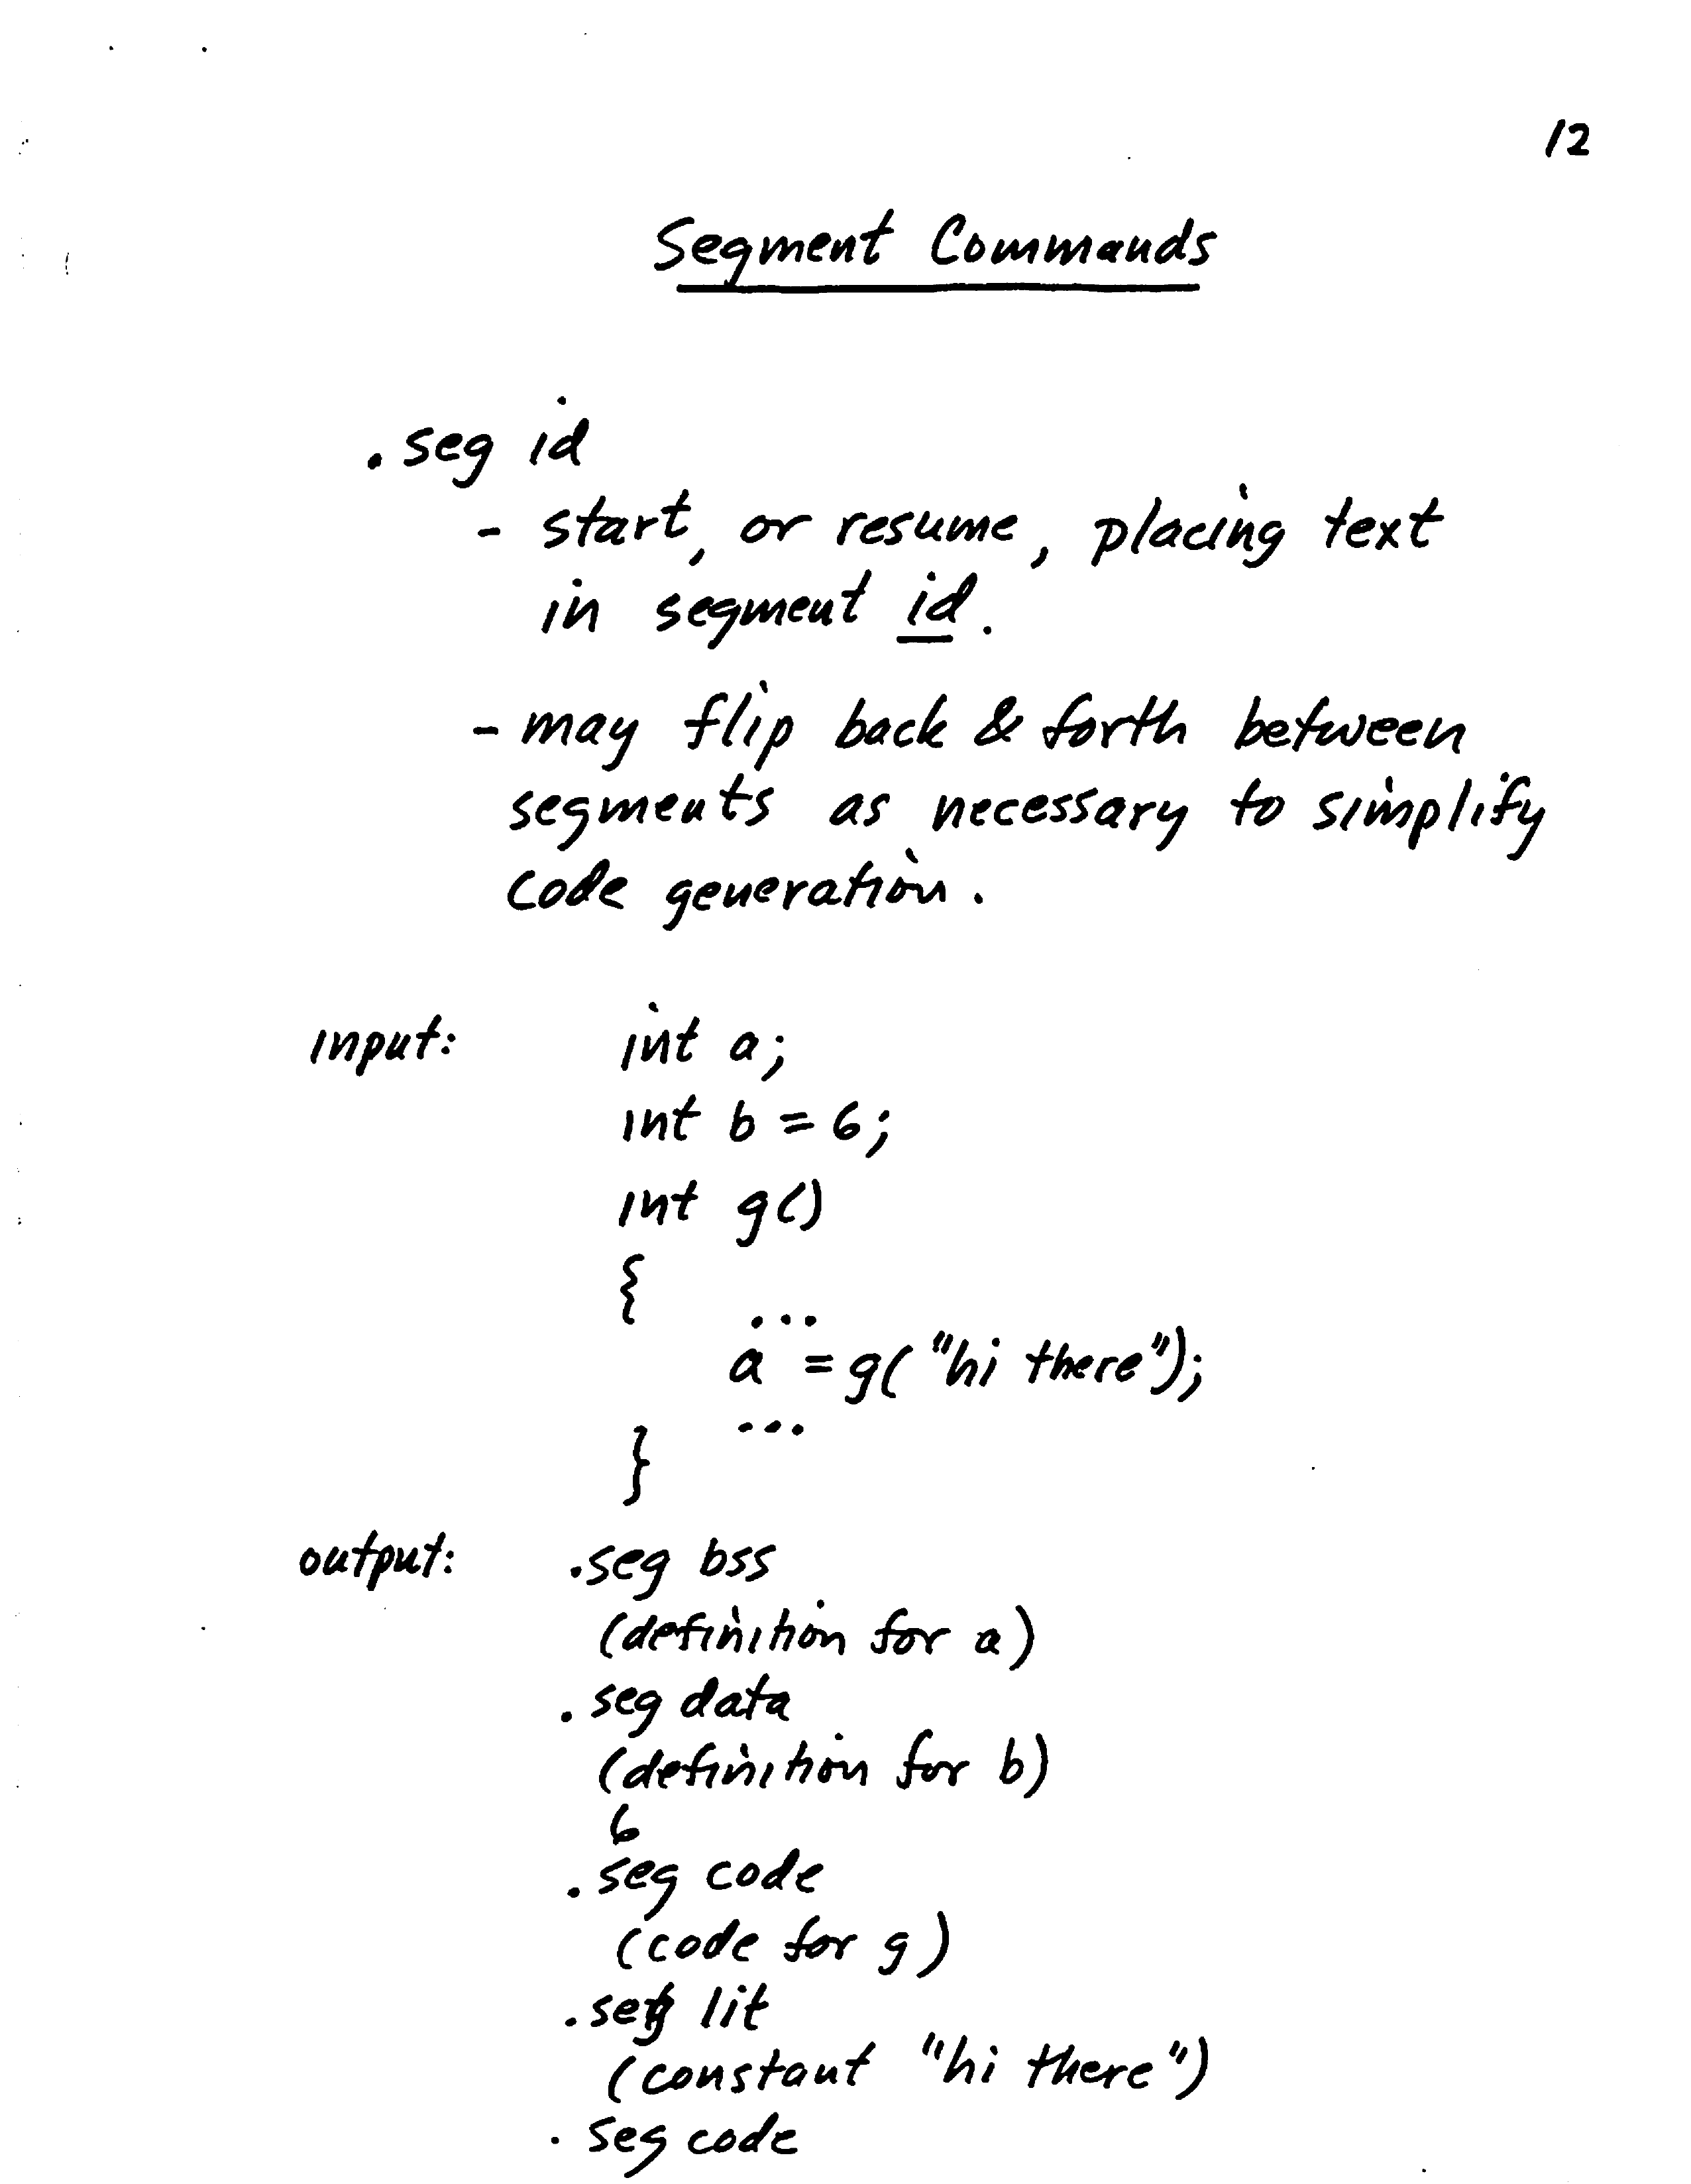 12
Segment Commands
.seg id
- start, or resume, placing text
in segment id.
- may flip back & forth between
segments as necessary to simplify
code generation.
input: int a;
int b = 6;
int g()
{ ...
a = g("hi there");
...
}
output: .seg bss
(definition for a)
.seg data
(definition for b)
6
.seg code
(code for g)
.seg lit
(constant "hi there")
.seg code